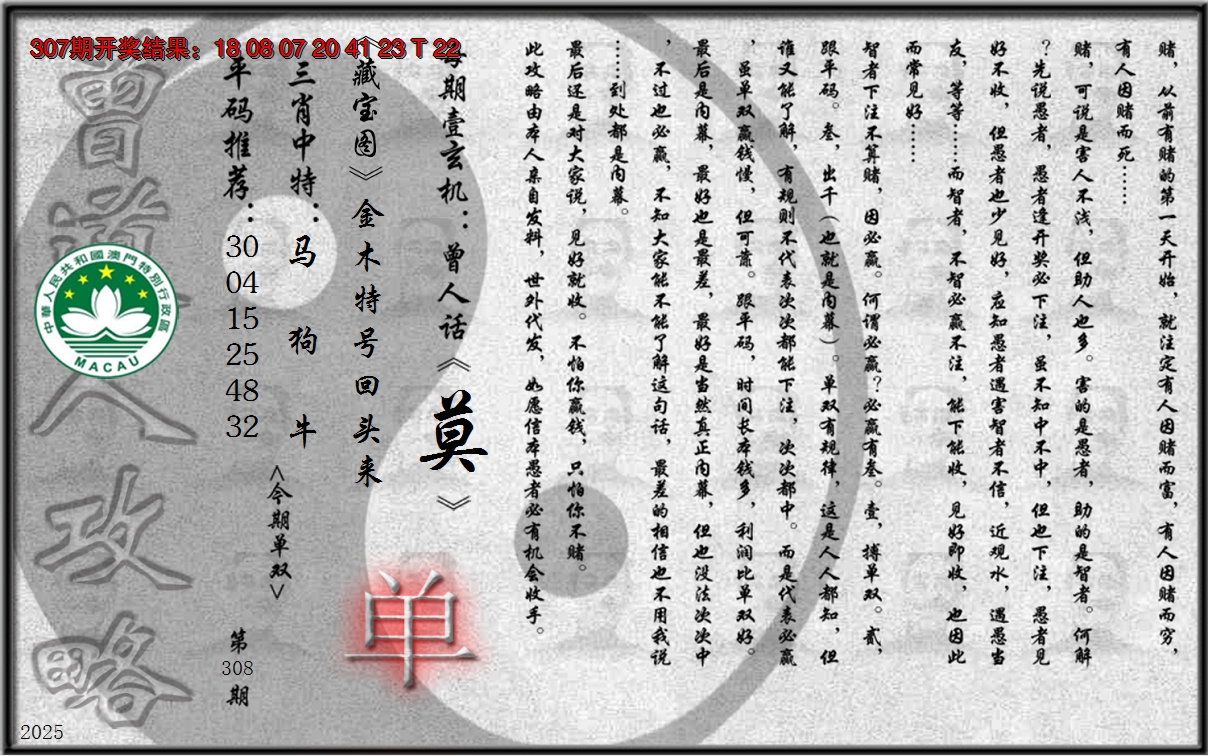 307期开奖结果：18 08 07 20 41 23 T 22
赌，从前有赌的第一天开始，就注定有人因赌而富，有人因赌而穷，
有人因赌而死……
赌，可说是害人不浅，但助人也多。害的是愚者，助的是智者。何解
？先说愚者，愚者逢开奖必下注，虽不知中不中，但也下注，愚者见
好不收，但愚者也少见好，应知愚者遇害智者不信，近观水，遇愚当
友，等等……而智者，不智必赢不注，能下能收，见好即收，也因此
而常见好……
智者下注不算赌，因必赢。何谓必赢？必赢有叁。壹，搏单双。贰，
跟平码。叁，出千（也就是内幕）。单双有规律，这是人人都知，但
谁又能了解，有规则不代表次次都能下注，次次都中。而是代表必赢
，虽单双赢钱慢，但可靠。跟平码，时间长本钱多，利润比单双好。
最后是内幕，最好也是最差，最好是当然真正内幕，但也没法次次中
，不过也必赢，不知大家能不能了解这句话，最差的相信也不用我说
……到处都是内幕。
最后还是对大家说，见好就收。不怕你赢钱，只怕你不赌。
此攻略由本人亲自发料，世外代发，如愿信本愚者必有机会收手。
每期壹玄机：曾人话《莫》
《藏宝图》金木特号回头来
单
三肖中特：马 狗 牛
<今期单双>
平码推荐：
30
04
15
25
48
32
第
308
期
曾道人攻略
中華人民共和國澳門特別行政區
MACAU
2025